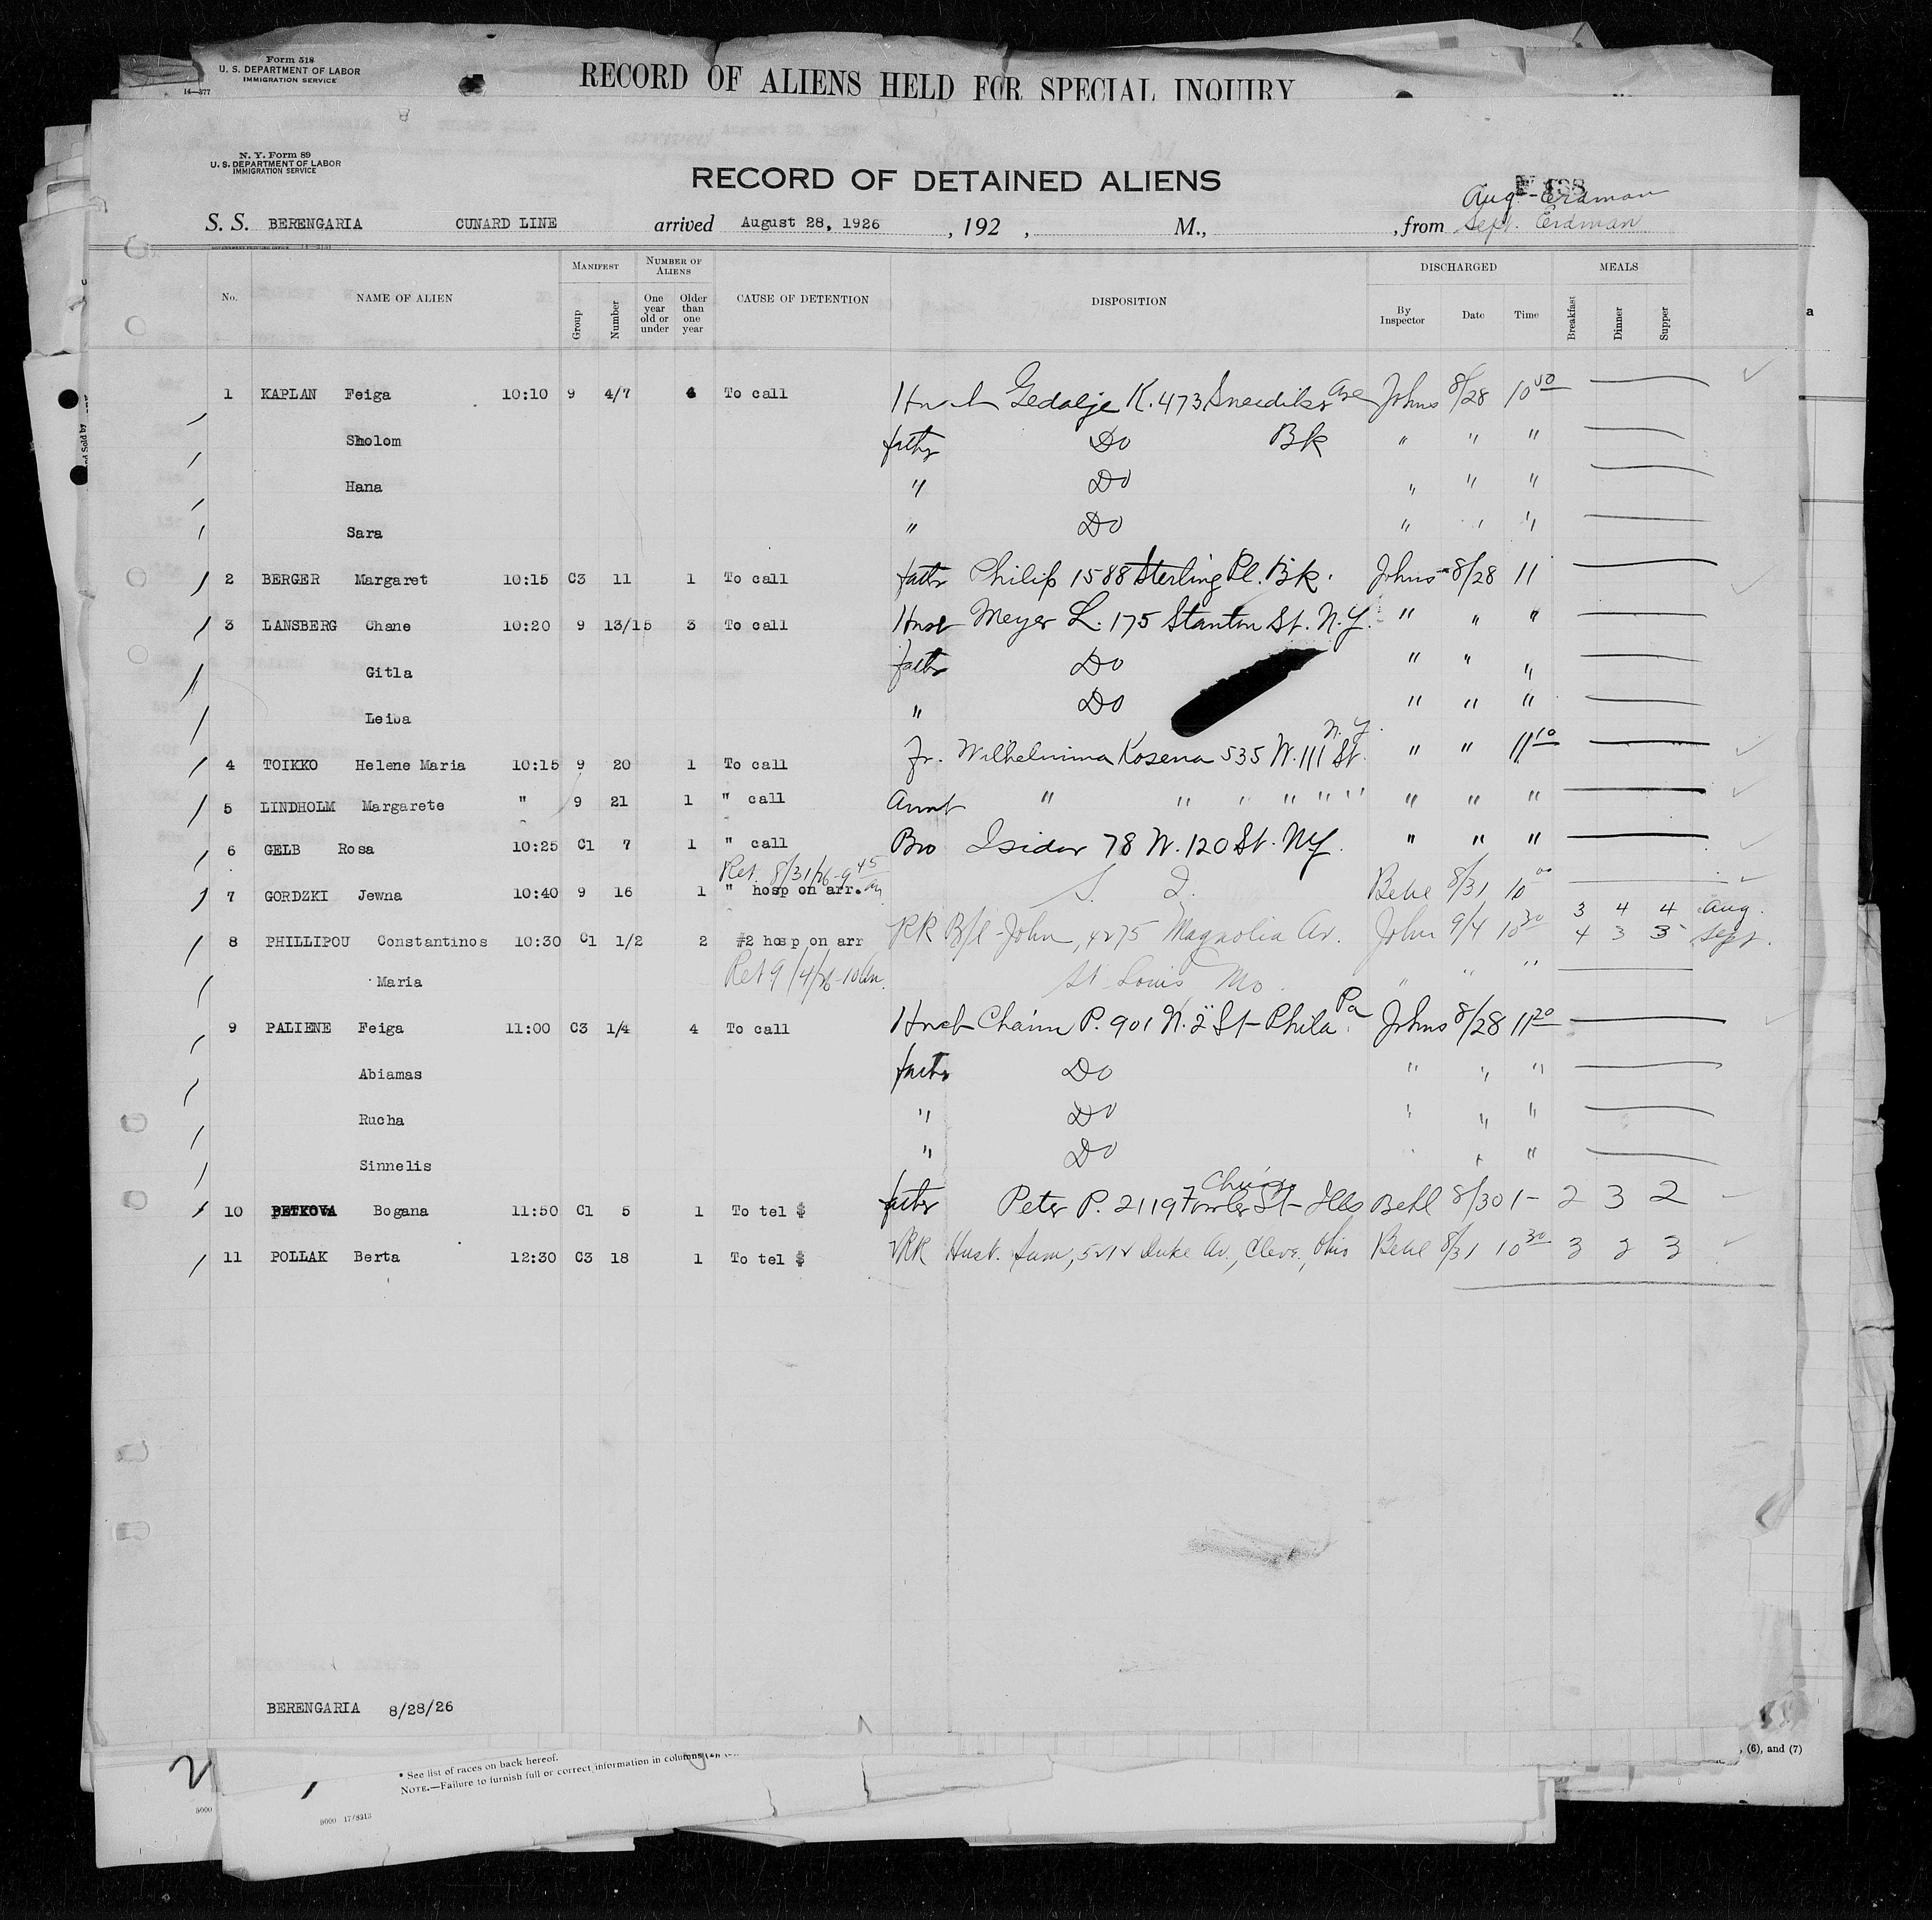 Form 518
U. S. DEPARTMENT OF LABOR
IMMIGRATION SERVICE
14—377
RECORD OF ALIENS HELD FOR SPECIAL INQUIRY
N. Y. Form 89
U. S. DEPARTMENT OF LABOR
IMMIGRATION SERVICE
RECORD OF DETAINED ALIENS
Aug. - Erdman
S. S. BERENGARIA CUNARD LINE arrived August 28, 1926 , 192 , M., , from Sept. Erdman
No. NAME OF ALIEN MANIFEST Group Number NUMBER OF ALIENS One year old or under Older than one year CAUSE OF DETENTION DISPOSITION DISCHARGED By Inspector Date Time MEALS Breakfast Dinner Supper
1 KAPLAN Feiga 10:10 9 4/7 4 To call Husb Gedalje K. 473 Snediker Ave Johns 8/28 10 50
Sholom father Do Bk " " "
Hana " Do " " "
Sara " Do " " "
2 BERGER Margaret 10:15 C3 11 1 To call father Philip 1588 Sterling Pl. Bk. Johns 8/28 11
3 LANSBERG Chane 10:20 9 13/15 3 To call Husb Meyer L. 175 Stanton St. N.Y. " " "
Gitla father Do " " "
Leiba " Do " " "
4 TOIKKO Helene Maria 10:15 9 20 1 To call fr. Wilhelmina Kosena 535 W. 111 St. N.Y. " " 11 10
5 LINDHOLM Margarete " 9 21 1 " call Aunt " " " " " " " " "
6 GELB Rosa 10:25 C1 7 1 " call Bro Isidor 78 W. 120 St. NY. " " "
Ret. 8/31/26 - 9 45 am
7 GORDZKI Jewna 10:40 9 16 1 " hosp on arr. S. I. 8/31 10 00
3 4 4 Aug.
8 PHILLIPOU Constantinos 10:30 C1 1/2 2 #2 hosp on arr RR B/l - John, 4275 Magnolia Av. John 9/4 10 30 4 3 3 Sept.
Maria Ret 9/4/26 - 10 am. St Louis Mo. " " "
9 PALIENE Feiga 11:00 C3 1/4 4 To call Husb Chaim P. 901 N. 2 St - Phila Pa. Johns 8/28 11 20
Abiamas father Do " " "
Rucha " Do " " "
Sinnelis " Do " "
10 PETKOVA Bogana 11:50 C1 5 1 To tel $ father Peter P. 2119 Fowler St - Chicago Ills 8/30 1 - 2 3 2
11 POLLAK Berta 12:30 C3 18 1 To tel $ RR Husb. Sam, 5212 Duke Av., Cleve., Ohio 8/31 10 30 3 2 3
BERENGARIA 8/28/26
2
* See list of races on back hereof.
NOTE.—Failure to furnish full or correct information in columns
, (6), and (7)